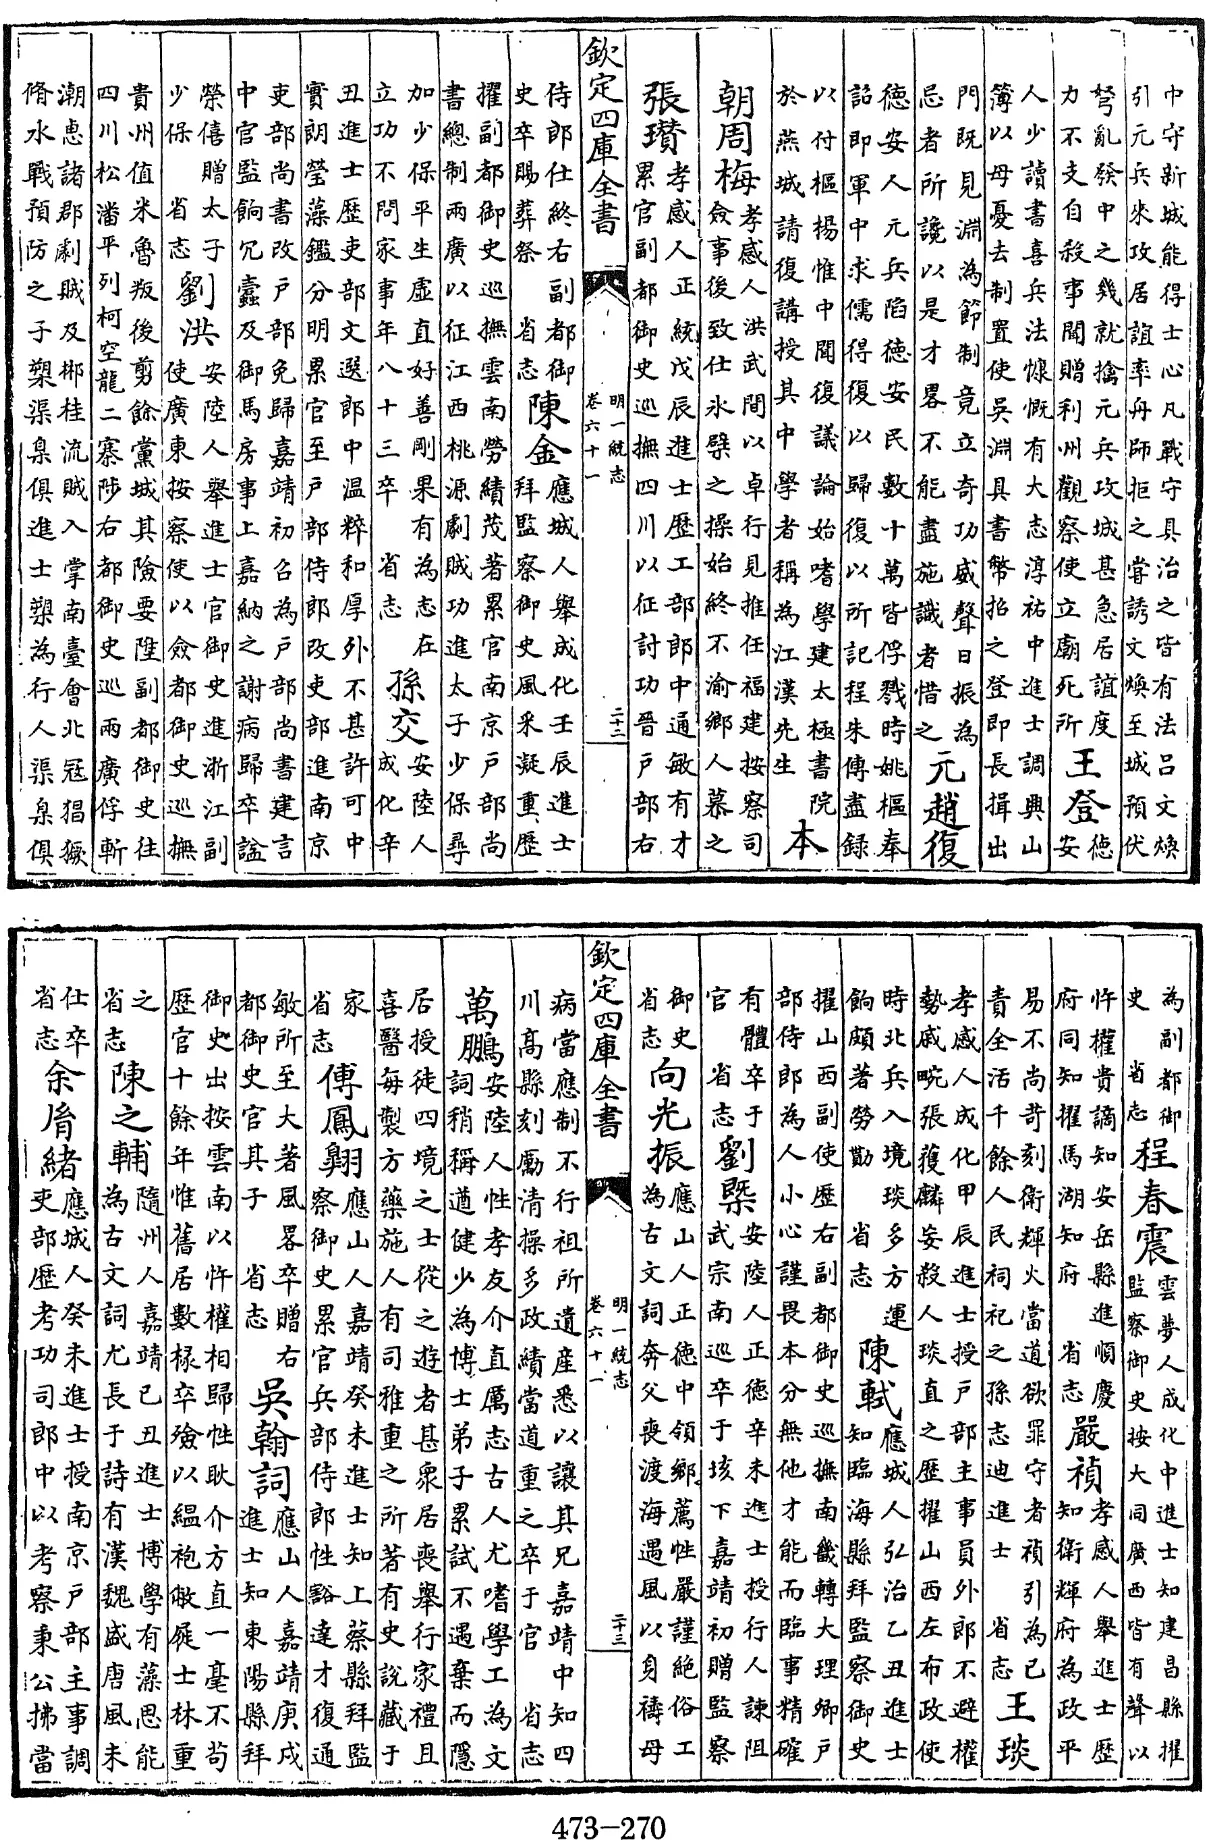 中守新城能得士心凡戰守具治之皆有法呂文煥
引元兵來攻居誼率舟師拒之嘗誘文煥至城預伏
弩亂發中之幾就擒元兵攻城甚急居誼度
力不支自殺事聞贈利州觀察使立廟死所
王登
德
安
人少讀書喜兵法慷慨有大志淳祐中進士調興山
簿以母憂去制置使吳淵具書幣招之登即長揖出
門既見淵為節制竟立奇功威聲日振為
忌者所讒以是才畧不能盡施識者惜之
元趙復
德安人元兵陷德安民數十萬皆俘戮時姚樞奉
詔即軍中求儒得復以歸復以所記程朱傳盡録
以付樞楊惟中聞復議論始嗜學建太極書院
於燕城請復講授其中學者稱為江漢先生
本
朝周梅
孝感人洪武間以卓行見推任福建按察司
僉事後致仕氷檗之操始終不渝鄉人慕之
張瓚
孝感人正統戊辰進士歷工部郎中通敏有才
累官副都御史巡撫四川以征討功晉戸部右
欽定四庫全書
明一統志
卷六十一
二十二
侍郎仕終右副都御
史卒賜葬祭 省志
陳金
應城人舉成化壬辰進士
拜監察御史風采凝重歷
擢副都御史巡撫雲南勞績茂著累官南京戸部尚
書總制兩廣以征江西桃源劇賊功進太子少保尋
加少保平生虛直好善剛果有為志在
立功不問家事年八十三卒 省志
孫交
安陸人
成化辛
丑進士歷吏部文選郎中温粹和厚外不甚許可中
實朗瑩藻鑑分明累官至戸部侍郎改吏部進南京
吏部尚書改戸部免歸嘉靖初召為戸部尚書建言
中官監餉冗蠹及御馬房事上嘉納之謝病歸卒諡
榮僖贈太子
少保 省志
劉洪
安陸人舉進士官御史進浙江副
使廣東按察使以僉都御史巡撫
貴州值米魯叛後剪餘黨城其險要陞副都御史往
四川松潘平列柯空龍二寨陟右都御史巡兩廣俘斬
潮惠諸郡劇賊及郴桂流賊入掌南臺會北冦猖獗
脩水戰預防之子槃渠臬俱進士槃為行人渠臬俱
為副都御
史 省志
程春震
雲夢人成化中進士知建昌縣擢
監察御史按大同廣西皆有聲以
忤權貴謫知安岳縣進順慶
府同知擢馬湖知府 省志
嚴禎
孝感人舉進士歷
知衛輝府為政平
易不尚苛刻衛輝火當道欲罪守者禎引為己
責全活千餘人民祠祀之孫志迪進士 省志
王琰
孝感人成化甲辰進士授戸部主事員外郎不避權
勢戚畹張䕶麟妄殺人琰直之歷擢山西左布政使
時北兵入境琰多方運
餉頗著勞勩 省志
陳軾
應城人弘治乙丑進士
知臨海縣拜監察御史
擢山西副使歷右副都御史巡撫南畿轉大理卿戸
部侍郎為人小心謹畏本分無他才能而臨事精確
有體卒于
官 省志
劉槩
安陸人正德辛未進士授行人諫阻
武宗南巡卒于垓下嘉靖初贈監察
御史
省志
向光振
應山人正德中領鄉薦性嚴謹絶俗工
為古文詞奔父喪渡海遇風以身禱母
欽定四庫全書
明一統志
卷六十一
二十三
病當應制不行祖所遺産悉以讓其兄嘉靖中知四
川高縣刻勵清操多政績當道重之卒于官 省志
萬鵬
安陸人性孝友介直厲志古人尤嗜學工為文
詞稍稱遒健少為博士弟子累試不遇棄而隱
居授徒四境之士從之遊者甚衆居喪舉行家禮且
喜醫每製方藥施人有司雅重之所著有史說藏于
家
省志
傅鳳翺
應山人嘉靖癸未進士知上蔡縣拜監
察御史累官兵部侍郎性豁達才復通
敏所至大著風畧卒贈右
都御史官其子 省志
吳翰詞
應山人嘉靖庚戌
進士知東陽縣拜
御史出按雲南以忤權相歸性耿介方直一毫不苟
歷官十餘年惟舊居數椽卒殮以緼袍敝屣士林重
之
省志
陳之輔
隨州人嘉靖己丑進士博學有藻思能
為古文詞尤長于詩有漢魏盛唐風未
仕卒
省志
余胤緒
應城人癸未進士授南京戸部主事調
吏部歷考功司郎中以考察秉公拂當
473-270